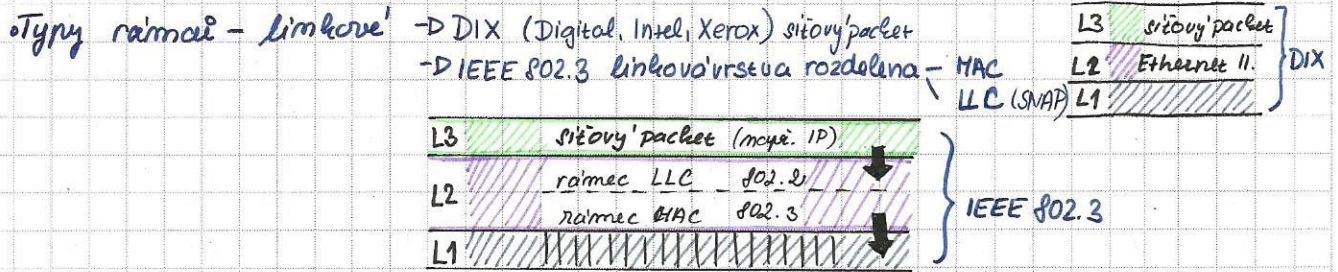 •Typy rámců - linkové -D DIX (Digital, Intel, Xerox) síťový packet
-D IEEE 802.3 linková vrstva rozdělena - MAC
LLC (SNAP)
L3 síťový packet
L2 Ethernet II.
L1
DIX
L3 síťový packet (např. IP)
L2 rámec LLC 802.2
rámec MAC 802.3
L1
IEEE 802.3